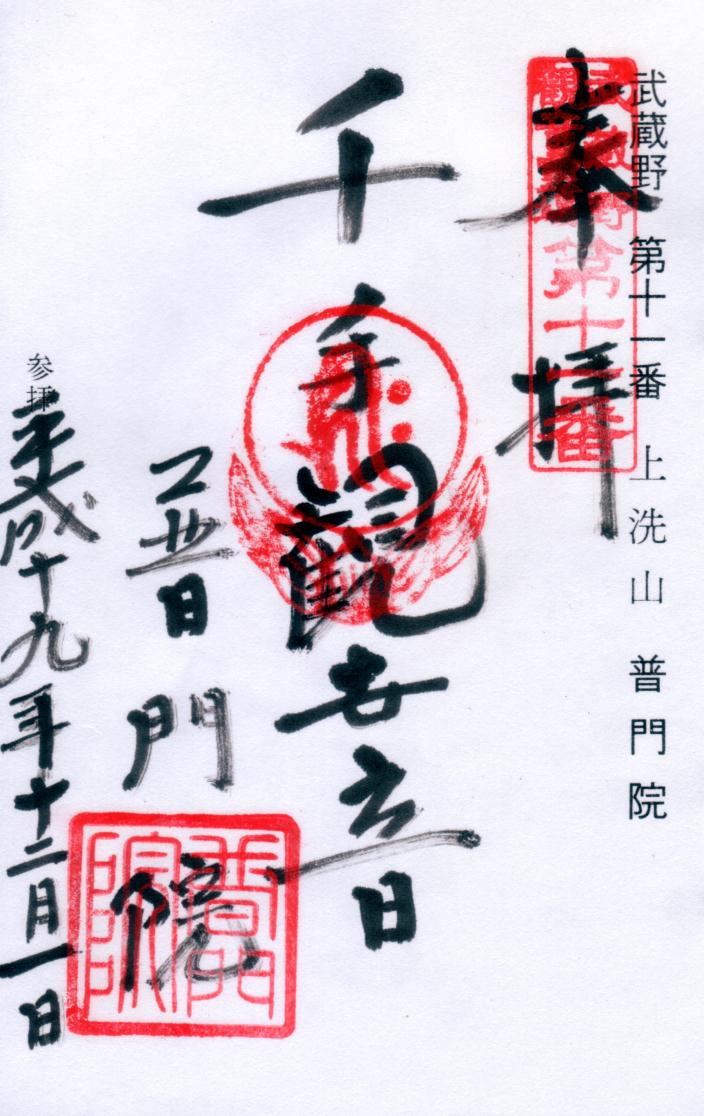 武蔵野 第十一番 上洗山 普門院
奉拝
武蔵野観音霊場第十一番
千手観世音
普門院
普門院
参拝
平成十九年十二月一日